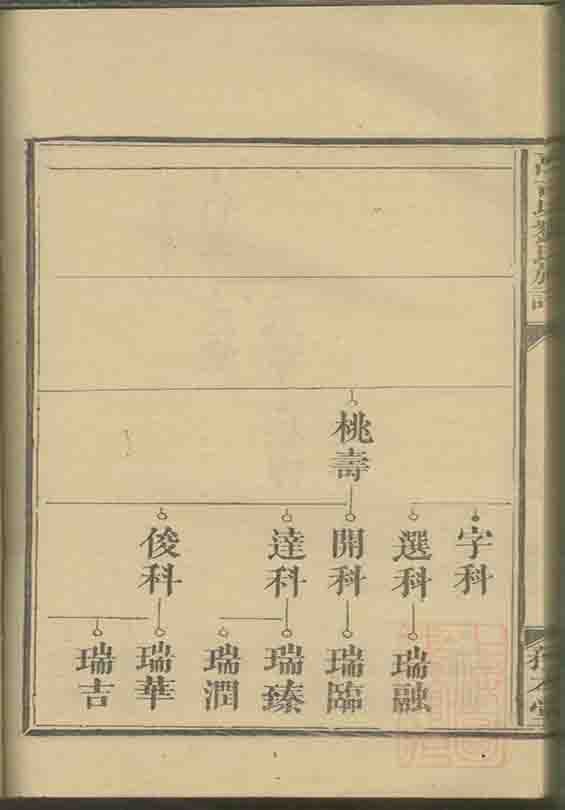 桃壽
字科
選科
開科
達科
俊科
瑞融
瑞臨
瑞臻
瑞潤
瑞華
瑞吉